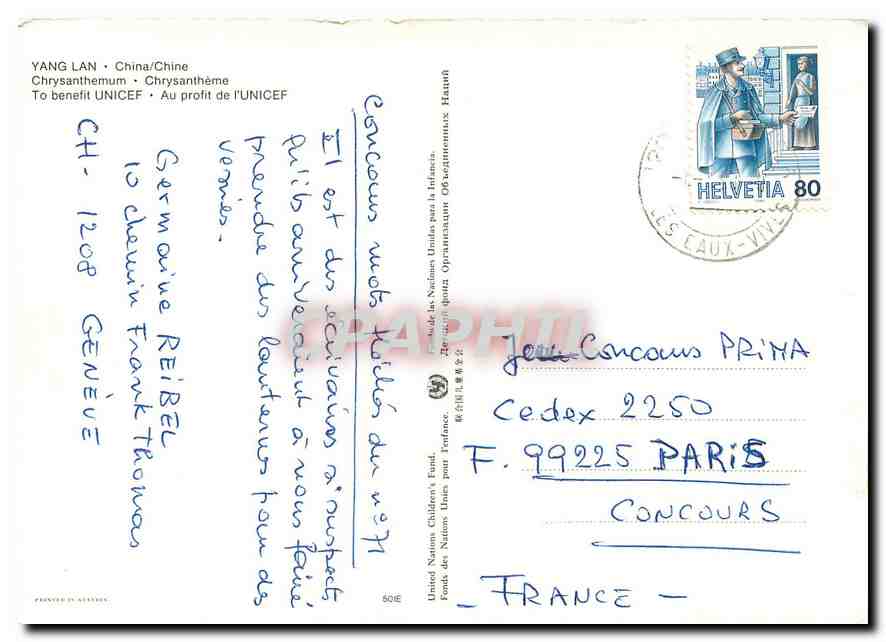 YANG LAN · China/Chine
Chrysanthemum · Chrysanthème
To benefit UNICEF · Au profit de l'UNICEF
Concours mots fléchés du n° 71
Il est des écrivaines si suspects
qu'ils arriveraient à nous faire
prendre des lanternes pour des
vessies.
Germaine REiBEL
10 chemin Frank Thomas
CH- 1208 GENÈVE
PRINTED IN
501E
United Nations Children's Fund.
Fonds des Nations Unies pour l'enfance.
联合国儿童基金会
de las Naciones Unidas para la Infancia.
Детский фонд Организации Объединенных Наций
CPAPHIL
HELVETIA 80
LES EAUX-VIVES
Concours PRIMA
Cedex 2250
F. 99225 PARiS
CONCOURS
- FRANCE -